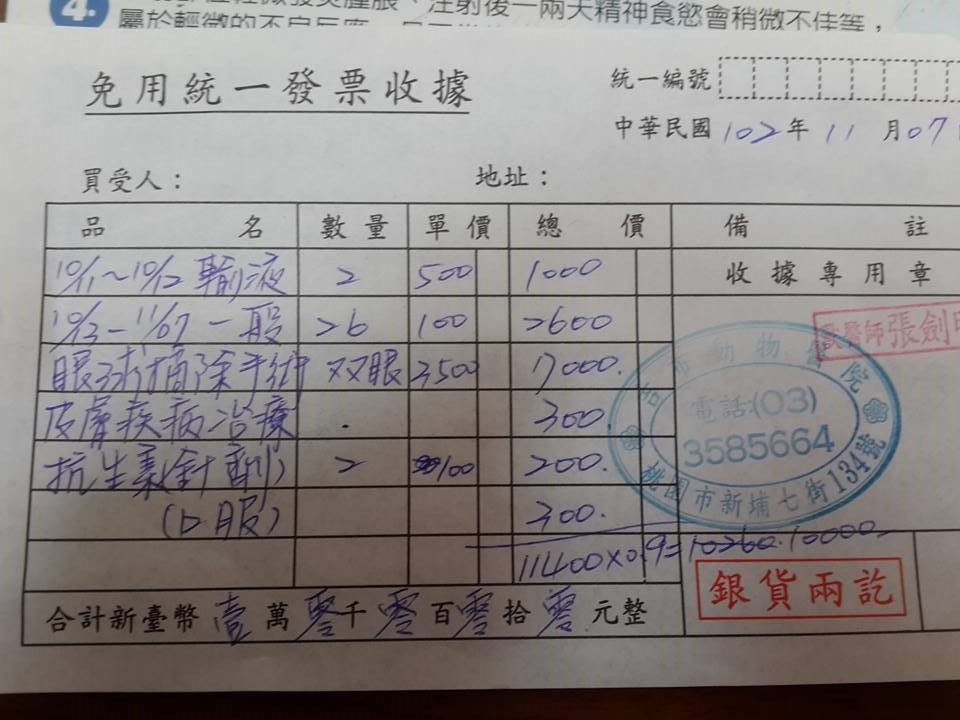 4.
注射後一兩天精神食慾會稍微不佳等，
屬於輕微的不良反應
免用統一發票收據
統一編號
中華民國102年11月07
買受人：
地址：
品名 數量 單價 總價 備註
10/11~10/12 輸液 2 500 1000
收據專用章
10/13-11/07 一般 26 100 2600
眼球摘除手術 双眼 3500 7000.
皮膚疾病治療 . 300.
抗生素(針劑) 2 100 200.
(口服) 300.
11400×0.9=10260.10000
合計新臺幣壹萬零千零百零拾零元整
銀貨兩訖
動物醫院
電話:(03)
3585664
桃園市新埔七街134號
獸醫師張劍